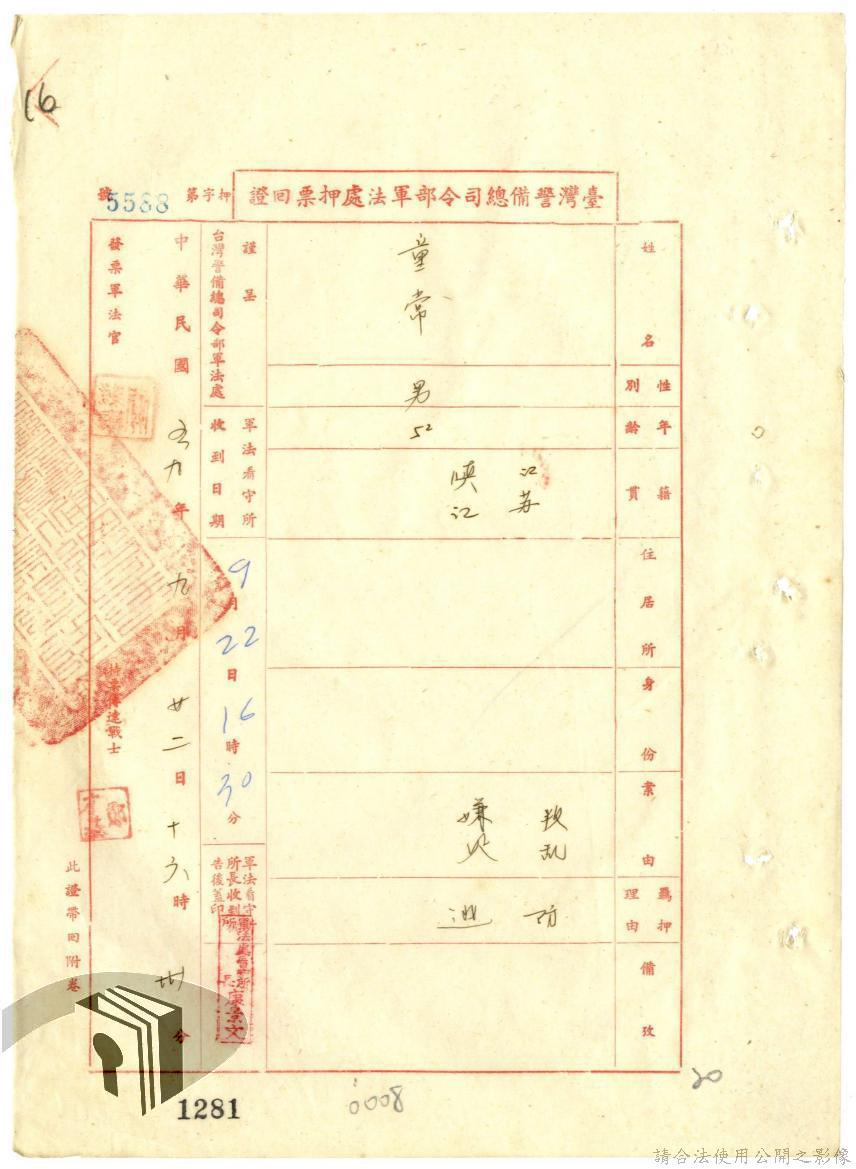 16
臺灣警備總司令部軍法處押票回證
押字第5588號
姓名
童常
性別
男
年齡
52
籍貫
江蘇
峽江
住居所
身份
案由
叛乱
嫌疑
羈押理由
防逃
備攷
謹呈
台灣警備總司令部軍法處
軍法看守所收到日期
9月22日16時30分
軍法看守所長收到被告後蓋印
中華民國五九年九月廿二日十六時卅分
發票軍法官
此證帶回附卷
1281
0008
20
請合法使用公開之影像